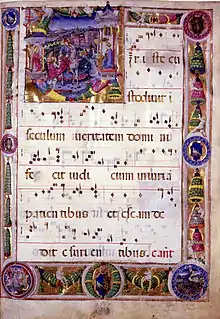 i ste cu
stodiuit i
seculum ueritatem domi ni
fe cit iudi cium iniuria
patien tibus et escam de
dit esurien tibus. cant